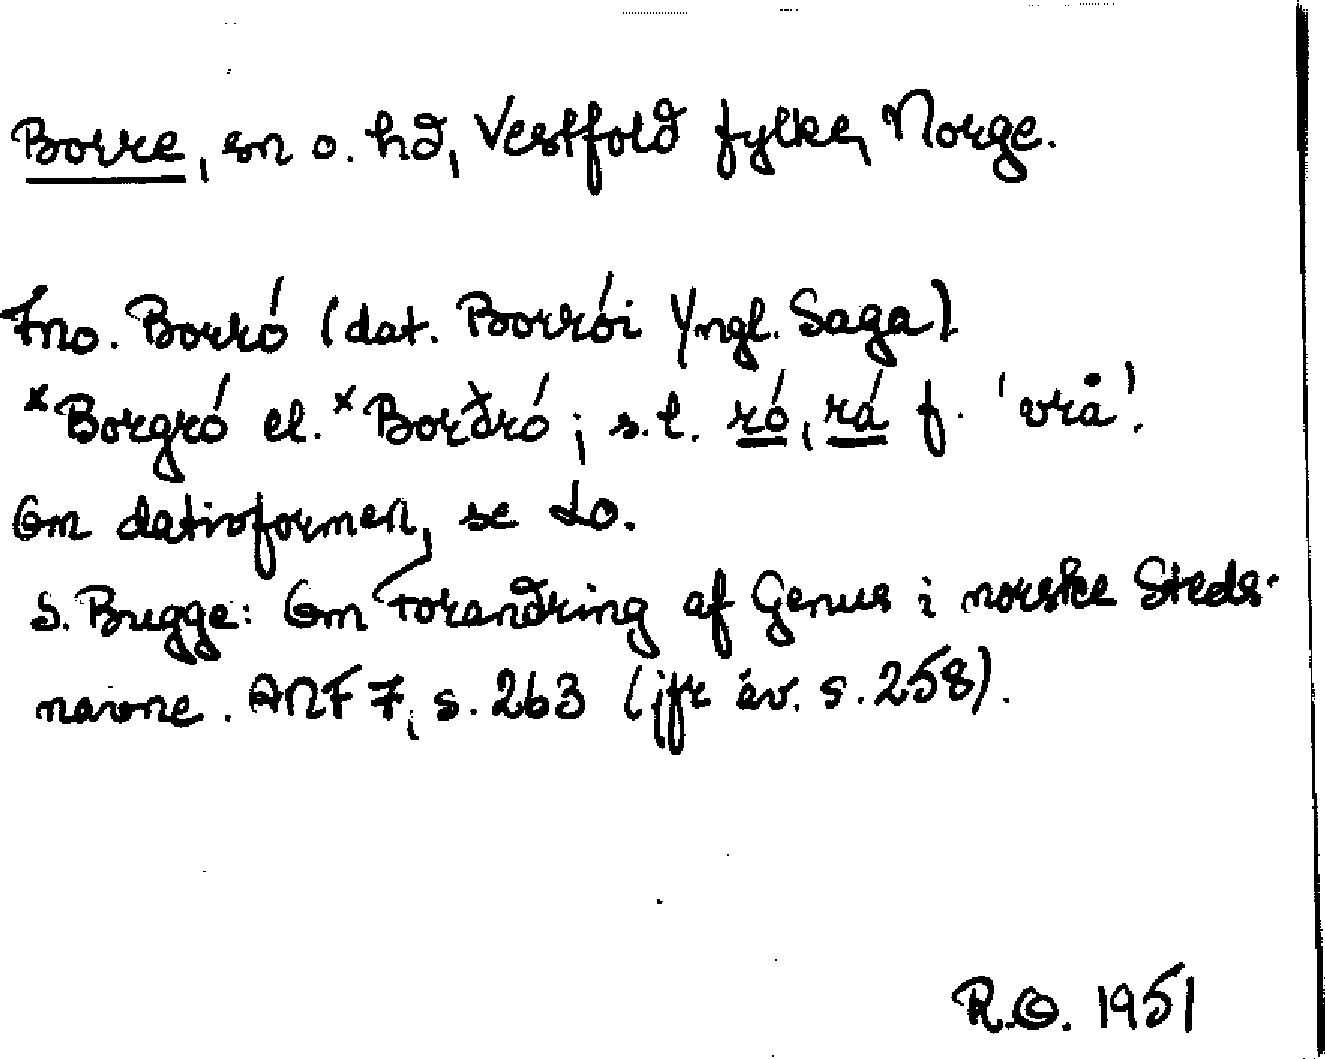 Borre, sn o. hd, Vestfold fylke, Norge.
Fno. Borró (dat. Borrói Yngl. Saga)
*Borgró el. *Borðró; s.l. ró, rá f. 'vrå'.
Om dativformen, se Lo.
S. Bugge: Om Forandring af Genus i norske Steds-
navne. ANF 7, s. 263 (jfr äv. s. 258).
R.O. 1951